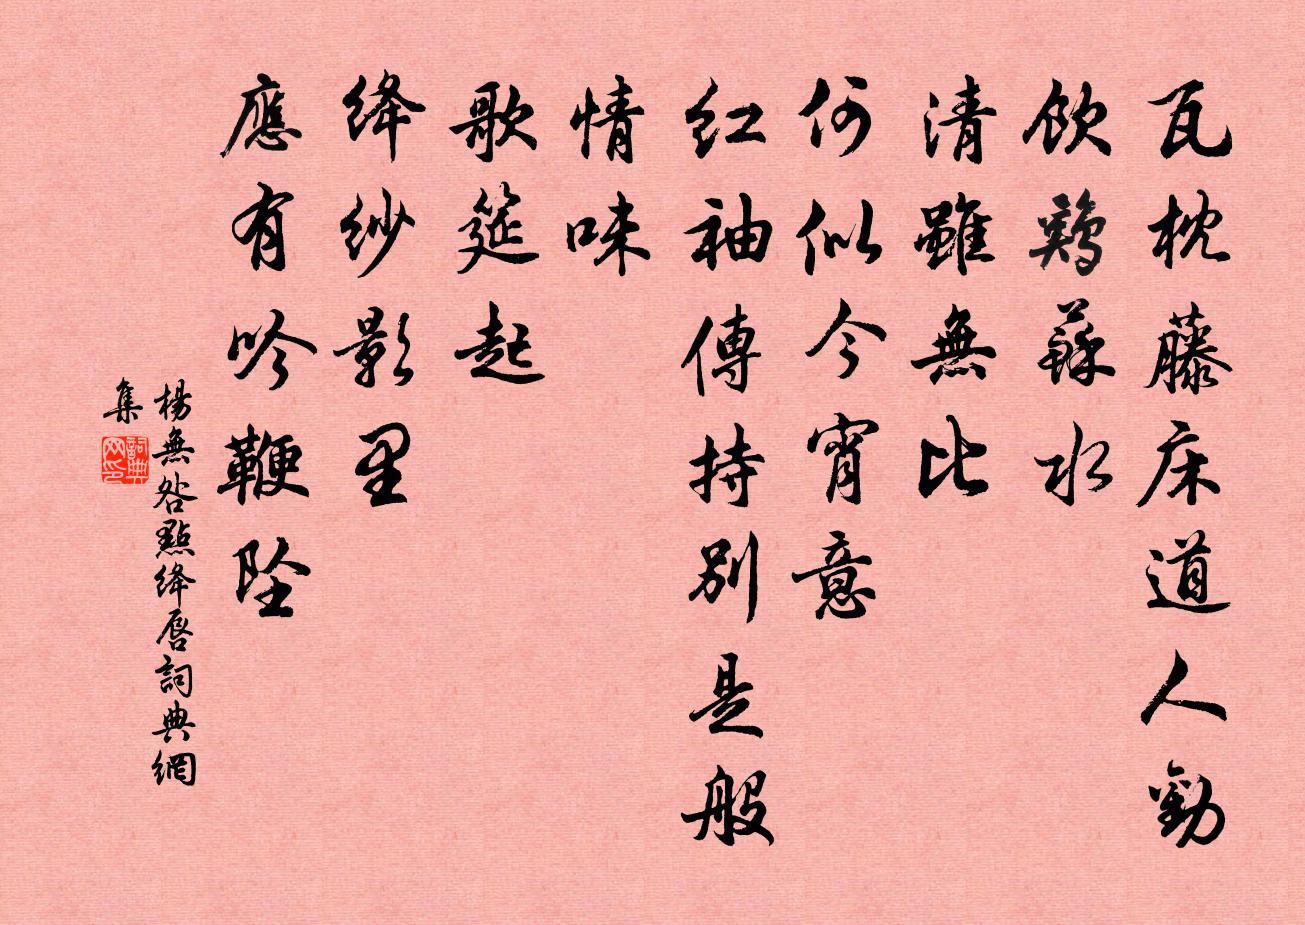 瓦枕藤床道人勸
飲鷄蘇水
清雖無比
何似今宵意
红袖傳持別是般
情味
歌筵起
绛纱影里
應有吟鞭坠
楊無咎點绛唇詞典網
集
詞典網印